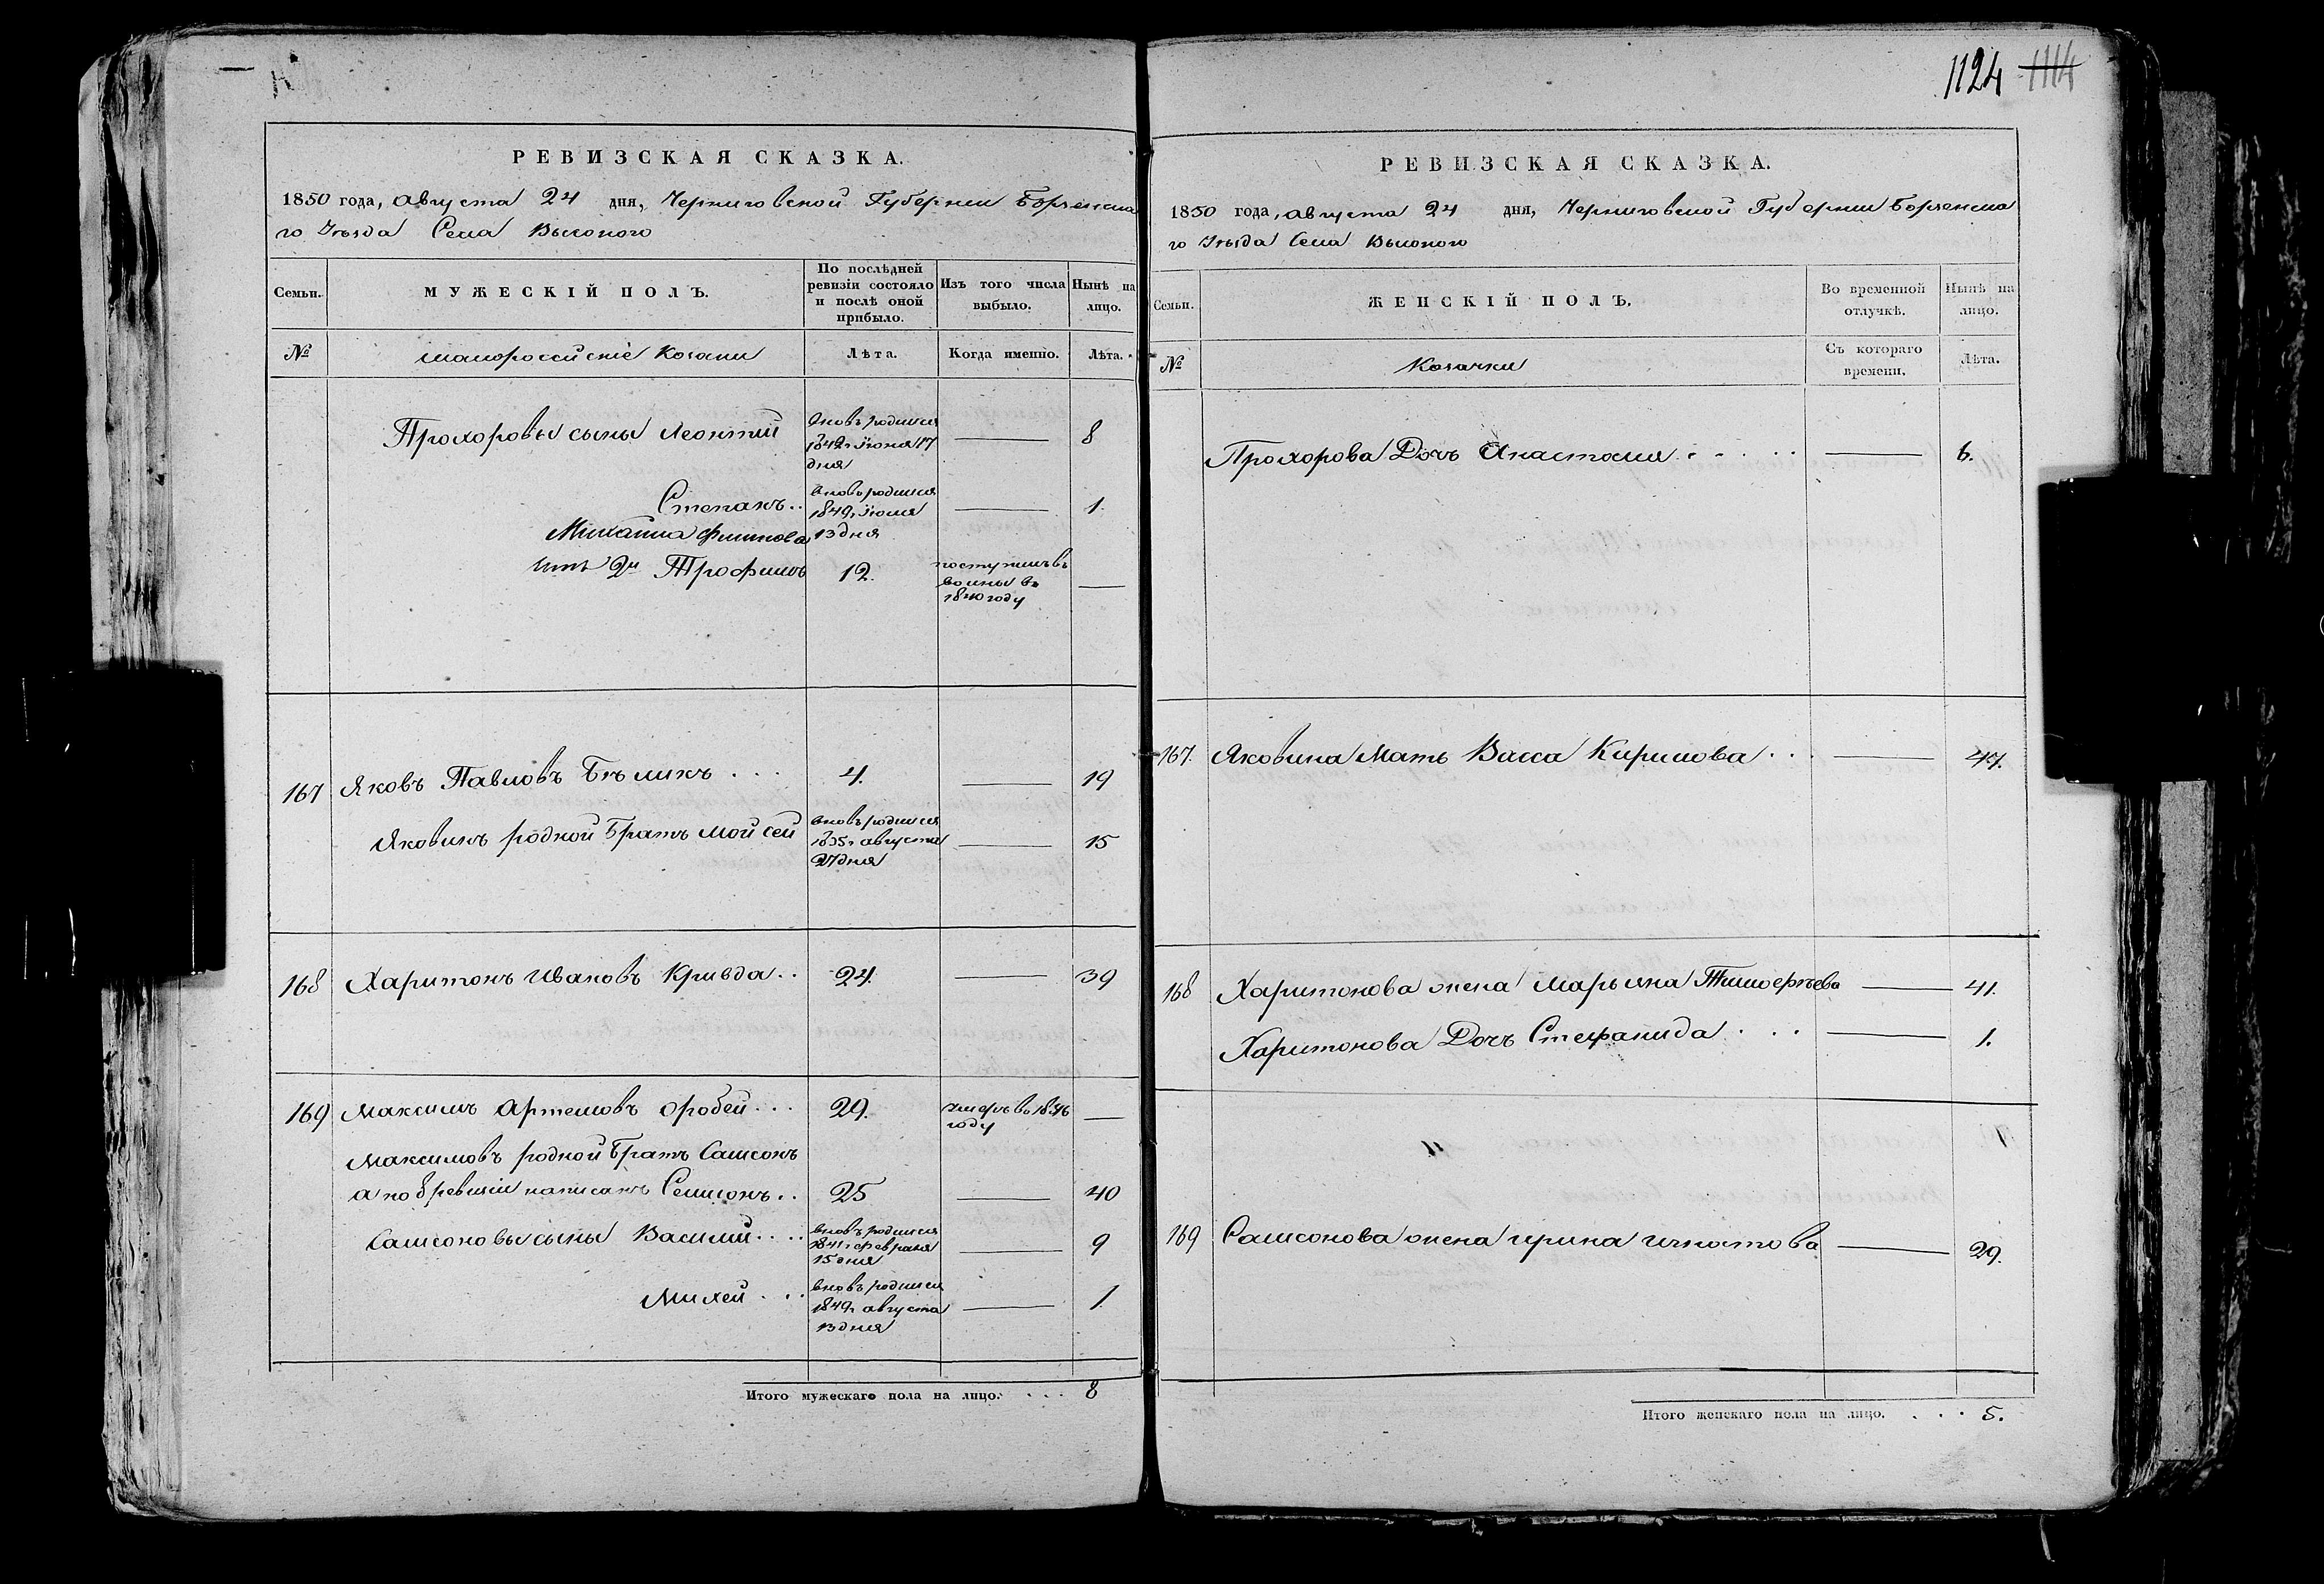 1124 1114
РЕВИЗСКАЯ СКАЗКА.
1850 года, августа 24 дня, Черниговской Губернии Борзенска
го Уѣзда Села Высокого
Семьи.
МУЖЕСКІЙ ПОЛЪ.
По послѣдней ревизіи состояло и послѣ оной прибыло.
Изъ того числа выбыло.
Нынѣ на лицо.
№
малороссійскіе козаки
Лѣта.
Когда именно.
Лѣта.
Прохоровы сыны Леонтий вновь родился 1842г июня 17 дня — 8
Степанъ.. вновь родился 1849г июля 13 дня — 1.
Михайла Филипова
сынъ 2й Трофимъ 12. поступилъ въ воины въ 1840 году —
167 Яковъ Павловъ Бѣликъ... 4. — 19
Яковинъ родной братъ Мойсей вновь родился 1835г августа 27 дня — 15
168 Харитонъ Ивановъ Кривда.. 24. — 39
169 Максимъ Артемовъ Оробей... 29. умеръ въ 1846 году —
Максимовъ родной братъ Самсонъ
а по 8 ревизіи написанъ Семионъ.. 25 — 40
Самсоновы сыны Василий.... вновь родился 1841г февраля 15 дня — 9
Михей... вновь родился 1849г августа 13 дня — 1.
Итого мужескаго пола на лицо.... 8
РЕВИЗСКАЯ СКАЗКА.
1850 года, августа 24 дня, Черниговской Губернии Борзенска
го Уѣзда Села Высокого
Семьи.
ЖЕНСКІЙ ПОЛЪ.
Во временной отлучкѣ.
Нынѣ на лицо.
№
Козачки
Съ котораго времени.
Лѣта.
Прохорова Дочь Анастасия..... — 6.
167. Яковина Мать Васса Кирилова... — 47.
168 Харитонова жена Марьяна Тимофѣева — 41.
Харитонова Дочь Стефанида... — 1.
169 Самсонова жена Ирина Игнатова — 29.
Итого женскаго пола на лицо.... 5.